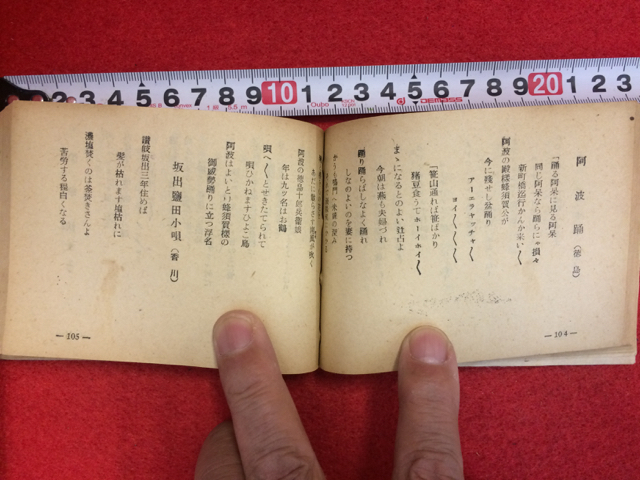 阿波踊（徳島）
「踊る阿呆に見る阿呆
同じ阿呆なら踊らにゃ損々
新町橋迄行かんか来い〱
阿波の殿様蜂須賀公が
今に残せし盆踊り
アーエラヤッチャ〱
ヨイ〱〱〱
「笹山通れば笹ばかり
猪豆食うてホーイホイ〱
まゝになるとのよい辻占よ
今朝は燕も夫婦づれ
踊り踊らばしなよく踊れ
しなのよいのを妻に持つ
― 104 ―
阿波の徳島十郎兵衛娘
年は九ツ名はお鶴
唄へ〱とせきたてられて
唄ひかねますひよこ鳥
阿波はよいとこ蜂須賀様の
御威勢踊りに立つ浮名
坂出鹽田小唄（香川）
讃岐坂出三年住めば
髪が枯れます塩枯れに
濃塩焚くのは釜焚きさんよ
苦労する程白くなる
― 105 ―
2 3 4 5 6 7 8 9 10 1 2 3 4 5 6 7 8 9 20 1 2 3
5.5m